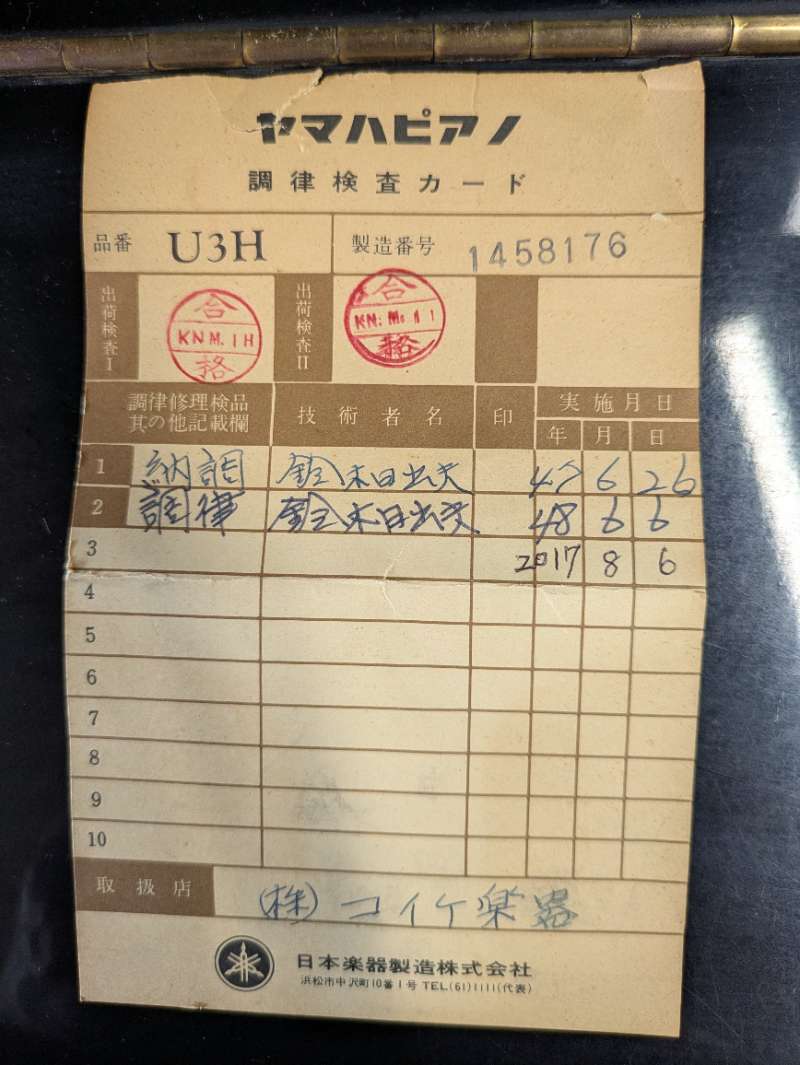 ヤマハピアノ
調律検査カード
品番 U3H 製造番号 1458176
出荷検査I 合格 KN.M.1H 出荷検査II 合格
調律修理検品其の他記載欄 技術者名 印 実施月日
年 月 日
1 納調 鈴木日出夫 47 6 26
2 調律 鈴木日出夫 48 6 6
3 2017 8 6
4
5
6
7
8
9
10
取扱店 (株)コイケ楽器
日本楽器製造株式会社
浜松市中沢町10番1号 TEL(61)1111(代表)